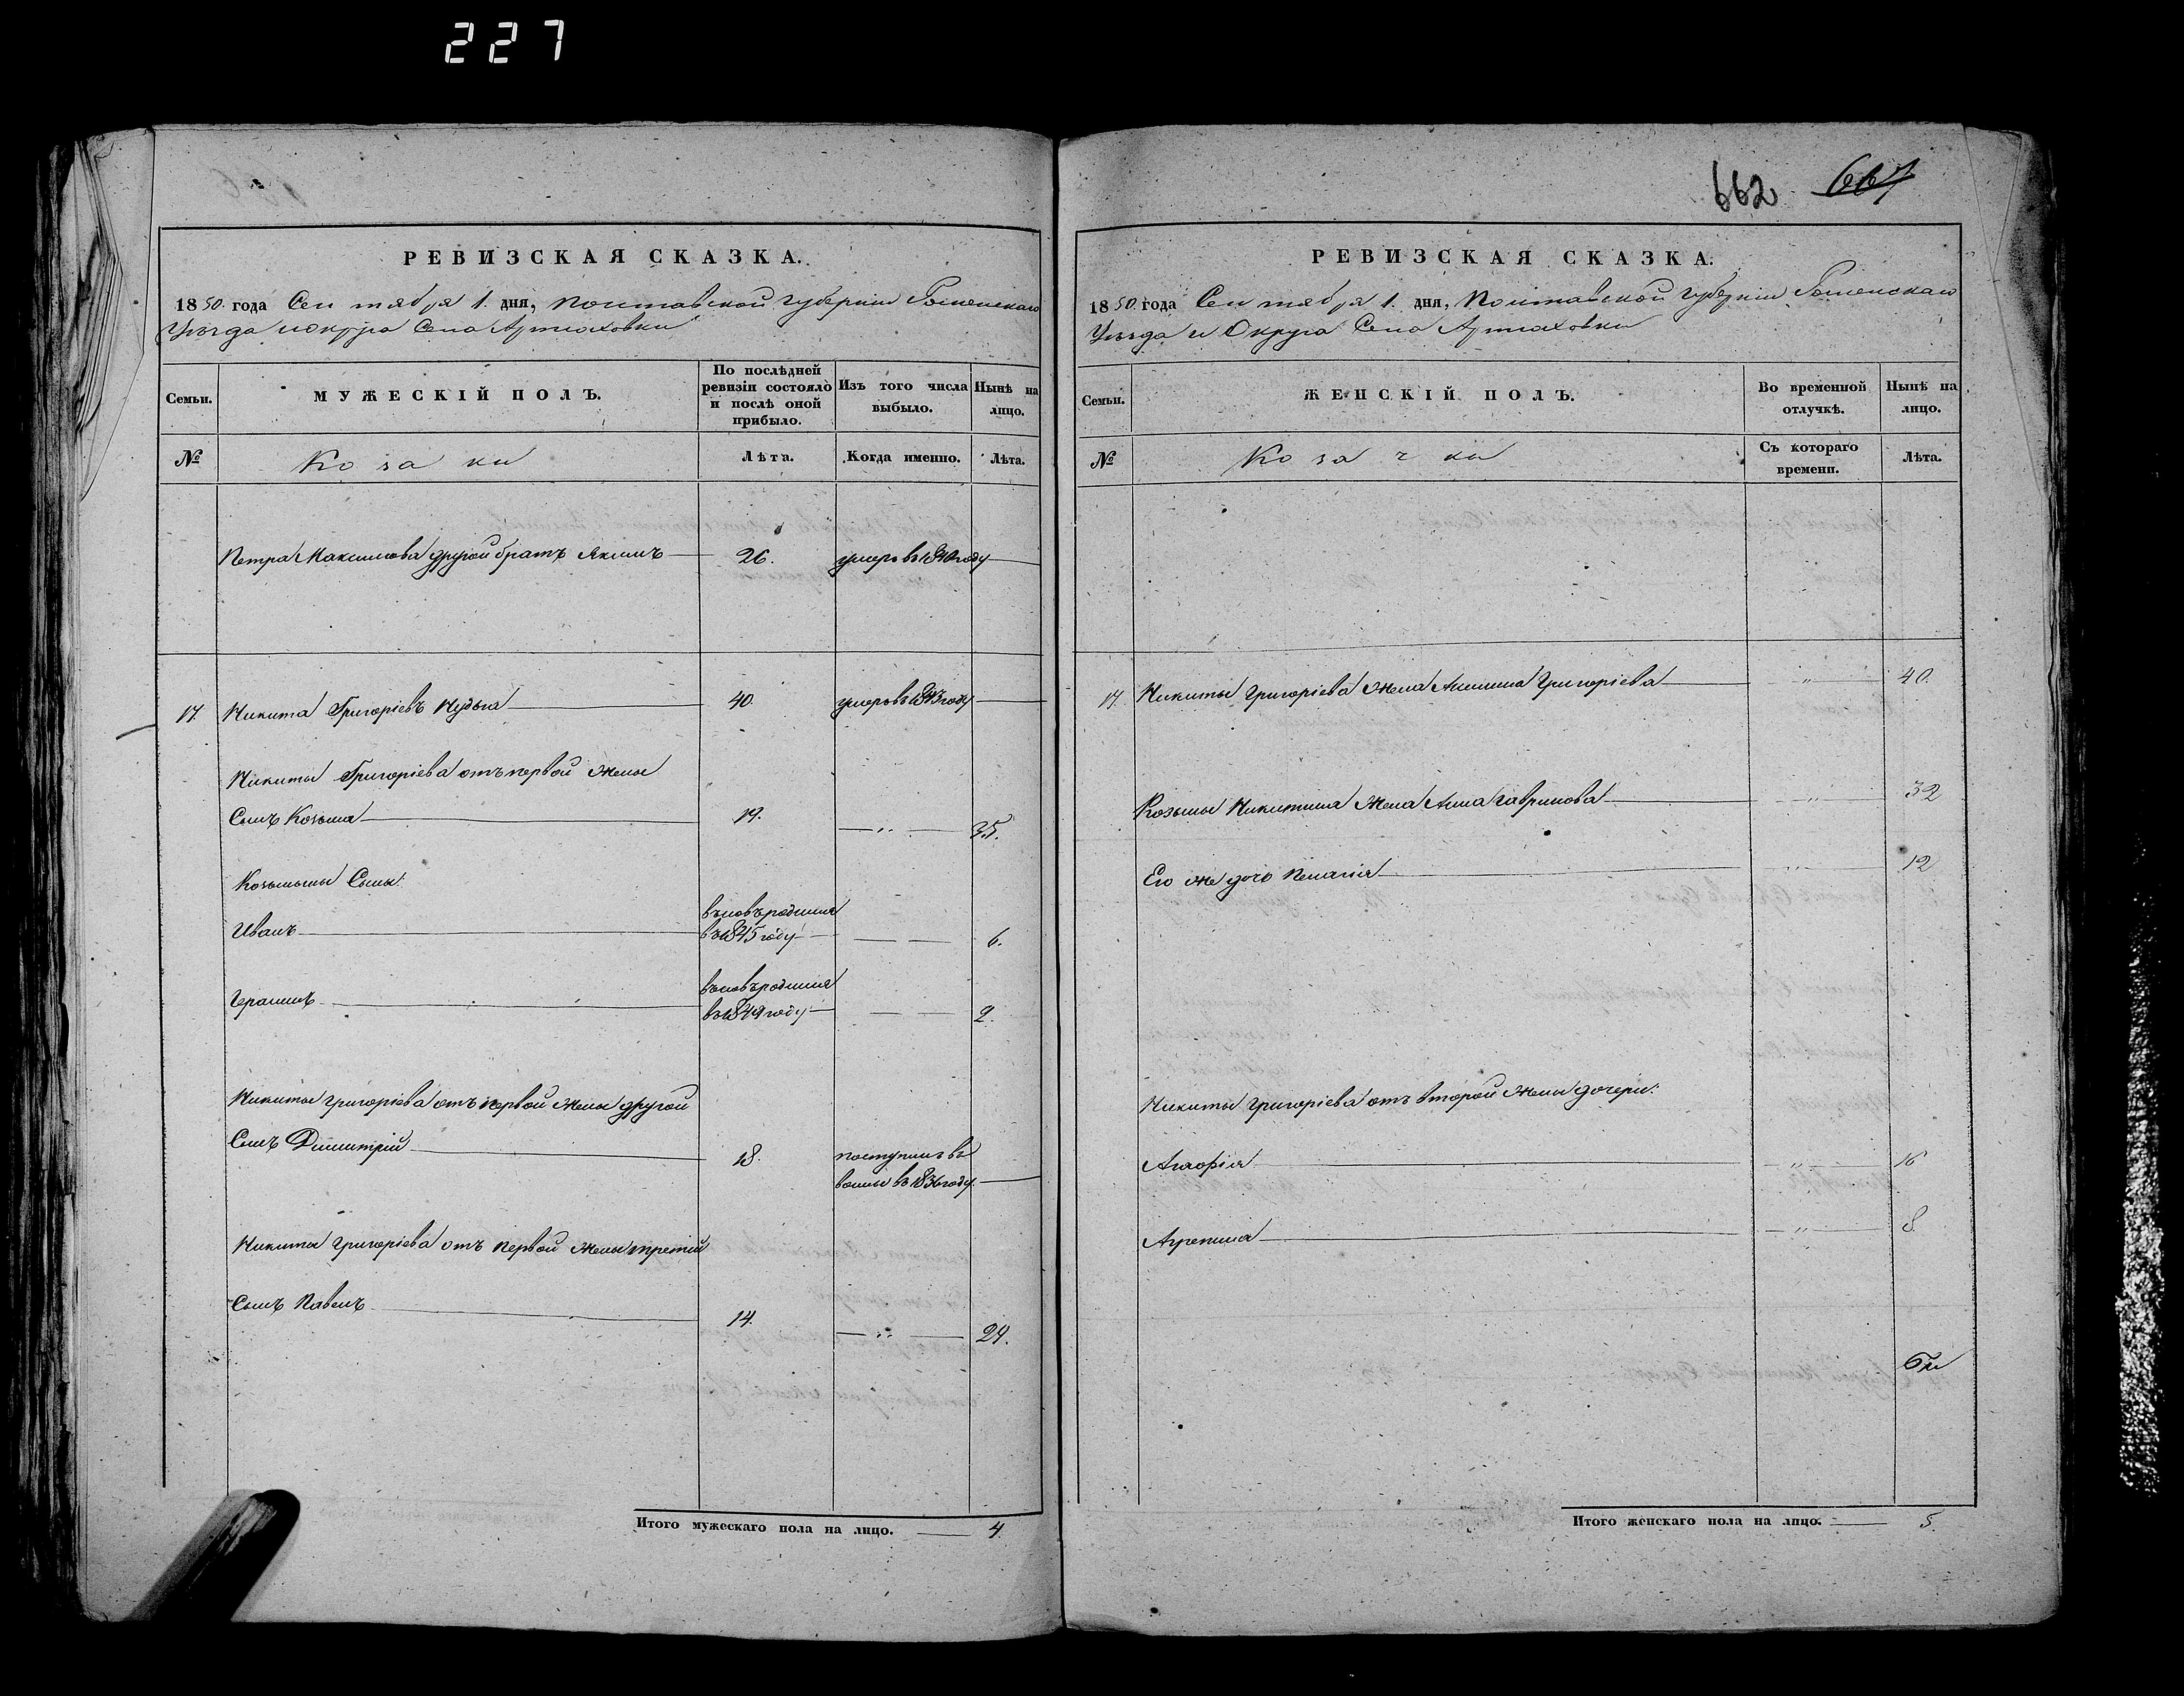 227
662 667
РЕВИЗСКАЯ СКАЗКА.
1850. года Сентября 1. дня, Полтавской губернiи Роменскаго
Уѣзда и округа Села Артюховки
Семьи.
МУЖЕСКІЙ ПОЛЪ.
По послѣдней ревизіи состояло и послѣ оной прибыло.
Изъ того числа выбыло.
Нынѣ на лицо.
№
Козаки
Лѣта.
Когда именно.
Лѣта.
Петра Максимова другой братъ Якимъ 26. умеръ въ 1840 году
17. Никита Григоріевъ Нудьга 40. умеръ въ 1843 году
Никиты Григоріева отъ первой жены
Сынъ Козьма 19. 35.
Козьмины Сыны:
Иванъ вновьродился въ 1845 году 6.
Герасимъ вновьродился въ 1849 году 2.
Никиты Григоріева отъ первой жены другой
Сынъ Димитрій 18. поступилъ въ воины въ 1836 году.
Никиты Григоріева отъ первой жены третій
Сынъ Павелъ 14. 29.
Итого мужескаго пола на лицо. 4.
РЕВИЗСКАЯ СКАЗКА.
1850. года Сентября 1. дня, Полтавской губернiи Роменскаго
Уѣзда и Округа Села Артюховки
Семьи.
ЖЕНСКІЙ ПОЛЪ.
Во временной отлучкѣ.
Нынѣ на лицо.
№
Козачки
Съ котораго времени.
Лѣта.
17. Никиты Григоріева жена Анна Григоріева " 40.
Козьмы Никитина жена Анна Гаврилова " 32
Его же дочь Пелагія " 12
Никиты Григоріева отъ второй жены дочери:
Агафія " 16
Агрепина " 8.
Итого женскаго пола на лицо. 5.